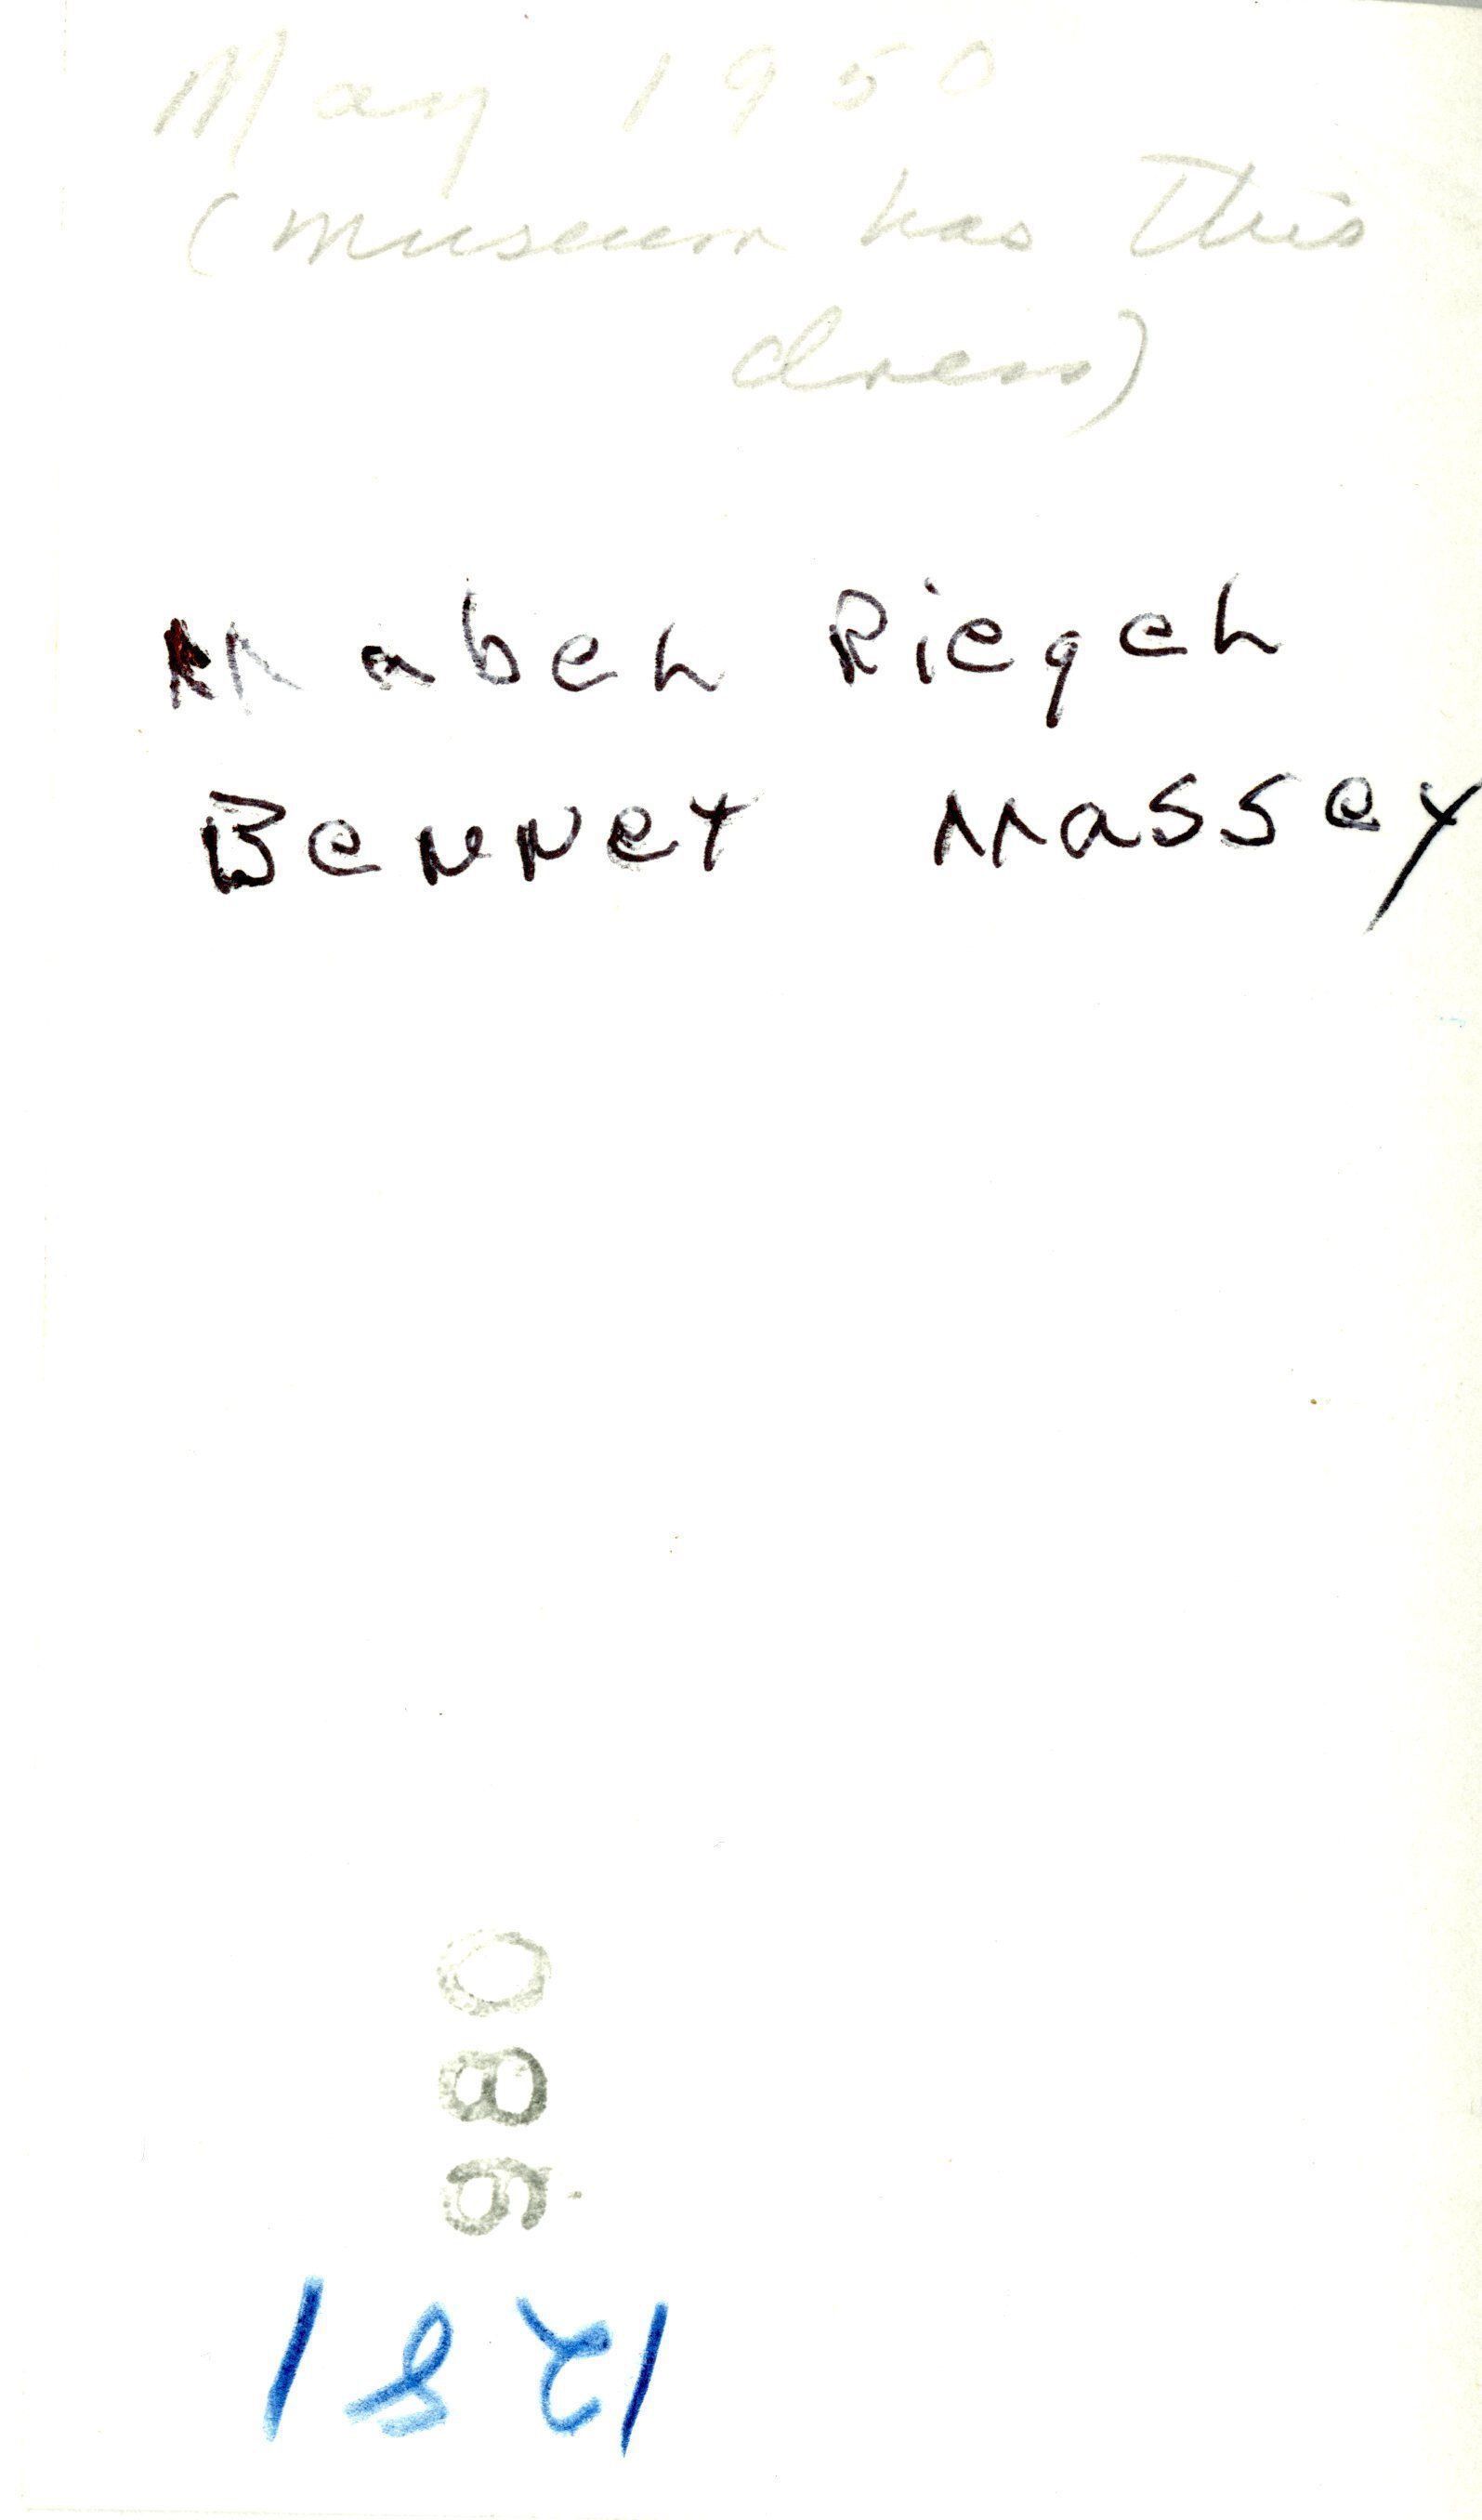 May 1950
(museum has this
dress)
Mabel Riegel
Bennet Massey
980